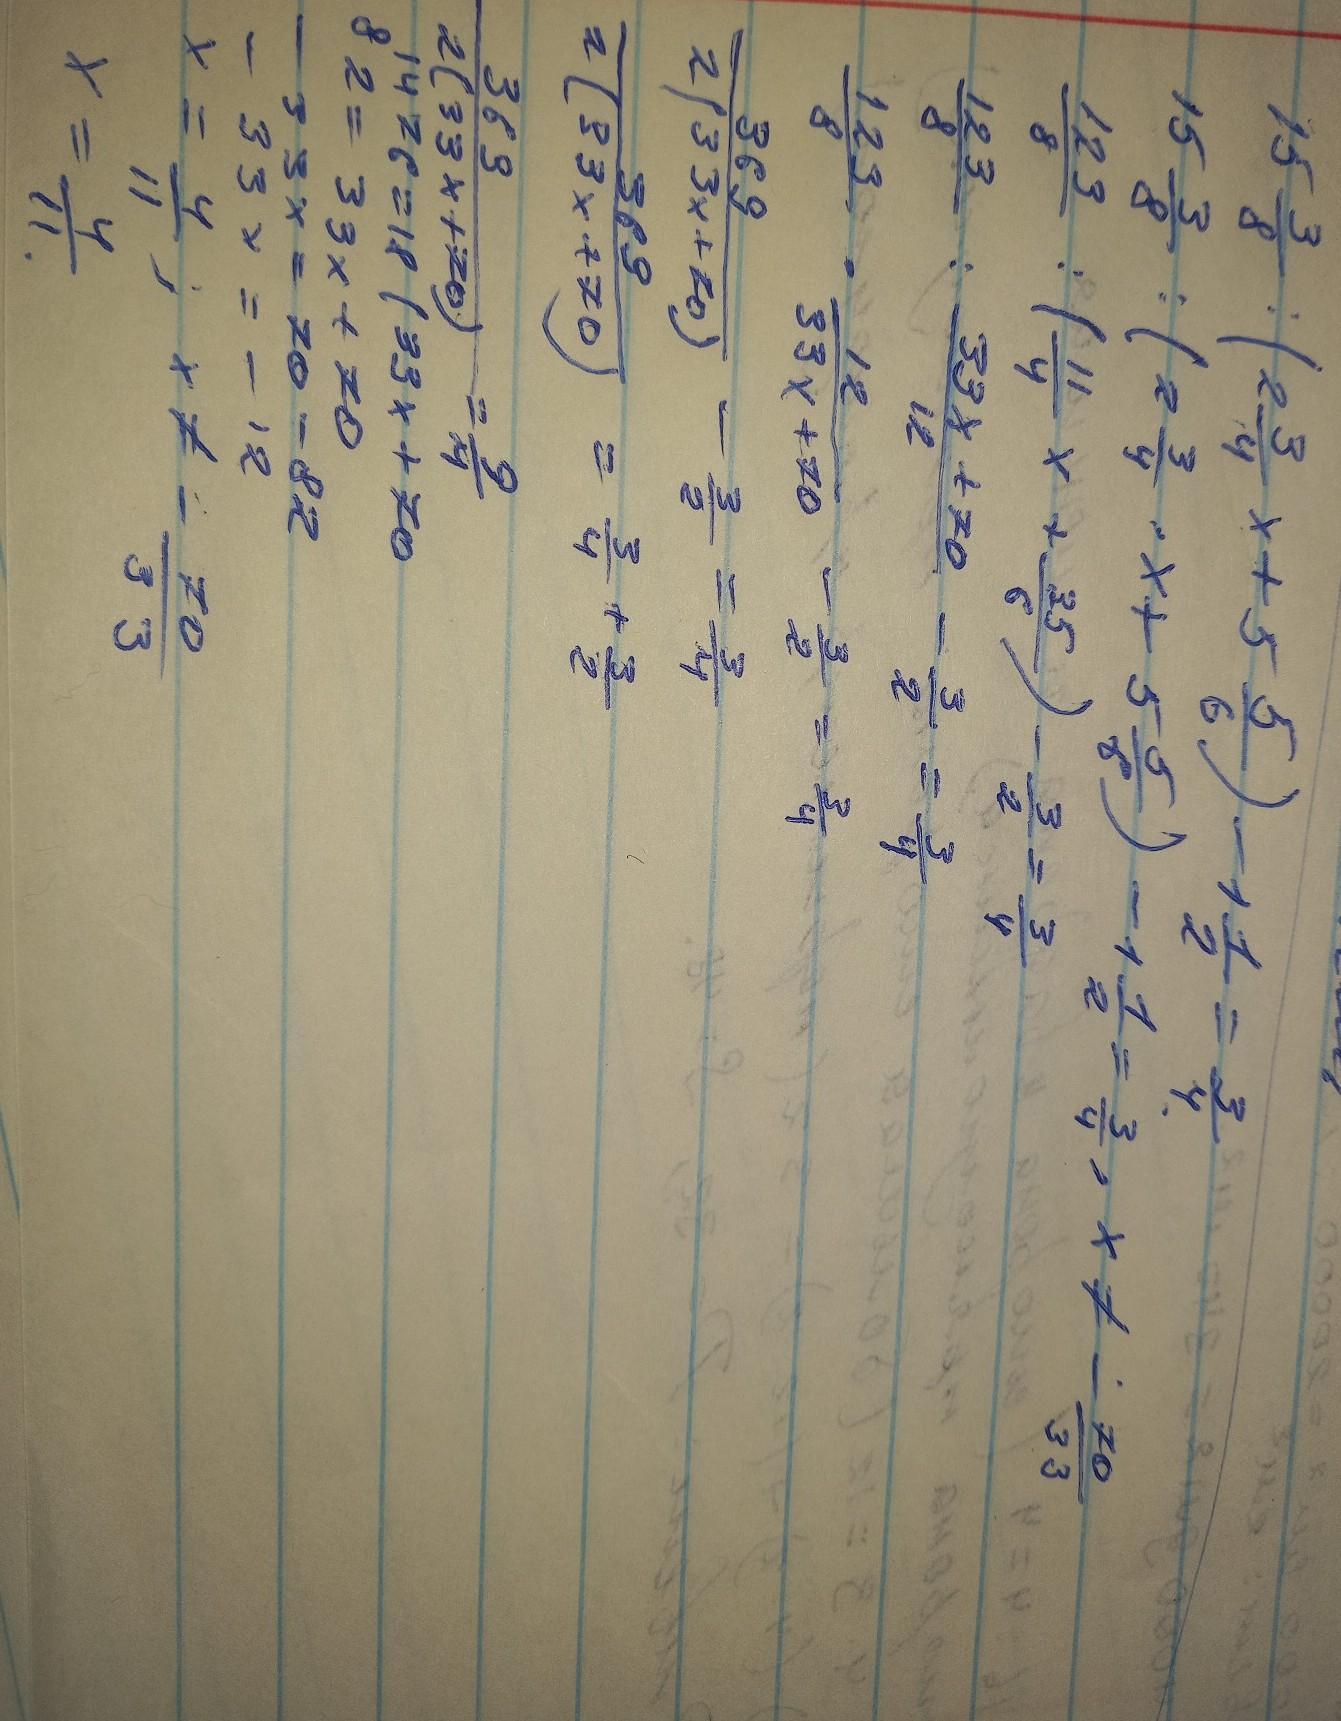 15 3/8 : (2 3/4 x + 5 5/6) - 1 1/2 = 3/4
15 3/8 : (2 3/4 · x + 5 5/6) - 1 1/2 = 3/4, x ≠ - 70/33
123/8 : (11/4 x + 35/6) - 3/2 = 3/4
123/8 : (33x + 70)/12 - 3/2 = 3/4
123/8 · 12/(33x + 70) - 3/2 = 3/4
369/(2(33x + 70)) - 3/2 = 3/4
369/(2(33x + 70)) = 3/4 + 3/2
369/(2(33x + 70)) = 9/4
1476 = 18(33x + 70
82 = 33x + 70
- 33x = 70 - 82
- 33x = - 12
x = 4/11, x ≠ - 70/33
x = 4/11.